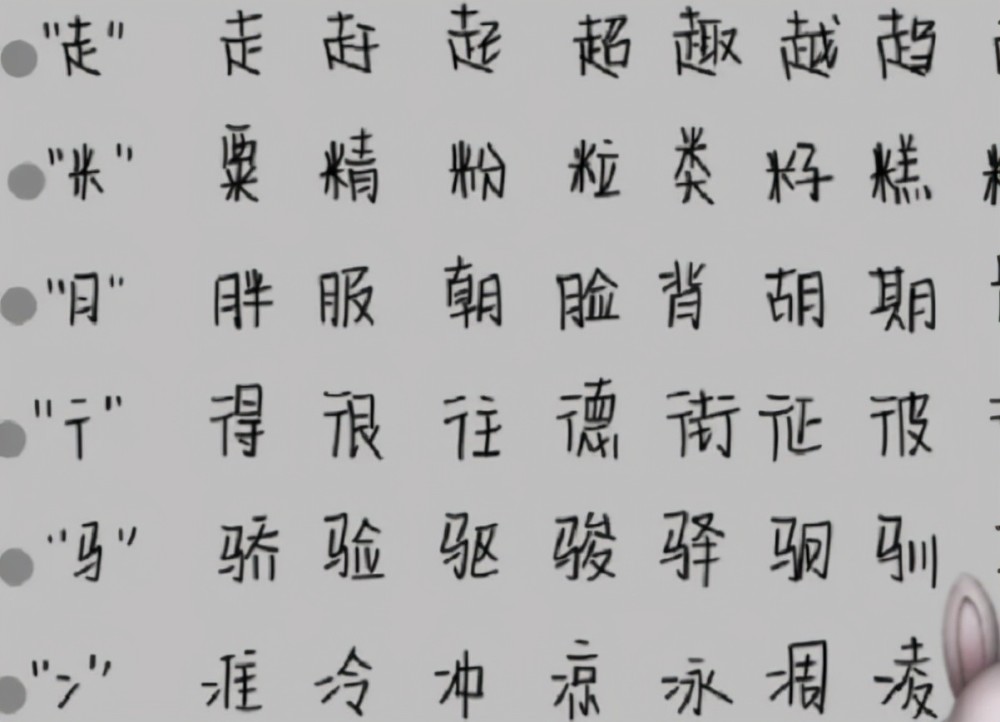 "走" 走 赶 起 超 趣 越 趋
"米" 粟 精 粉 粒 类 籽 糕
"月" 胖 服 朝 脸 背 胡 期
"彳" 得 很 往 德 街 征 彼
"马" 骄 验 驱 骏 驿 驷 驯
"冫" 准 冷 冲 凉 冰 凋 凌